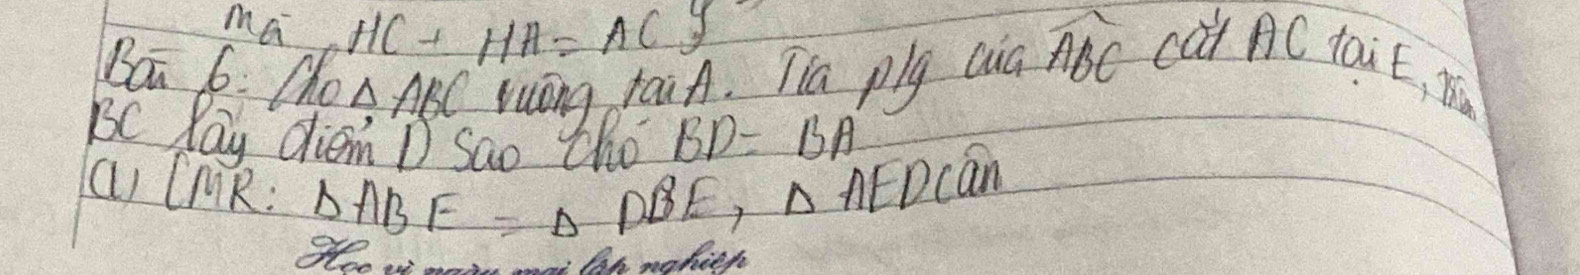 mà HC + HA = AC
Bài 6: Cho Δ ABC vuông tại A. Tia p/g của ABC cắt AC tại E, trên
BC lấy điểm D sao cho BD = BA
a) CMR: Δ ABE = Δ DBE, Δ AED cân
Học vì ngày mai lập nghiệp